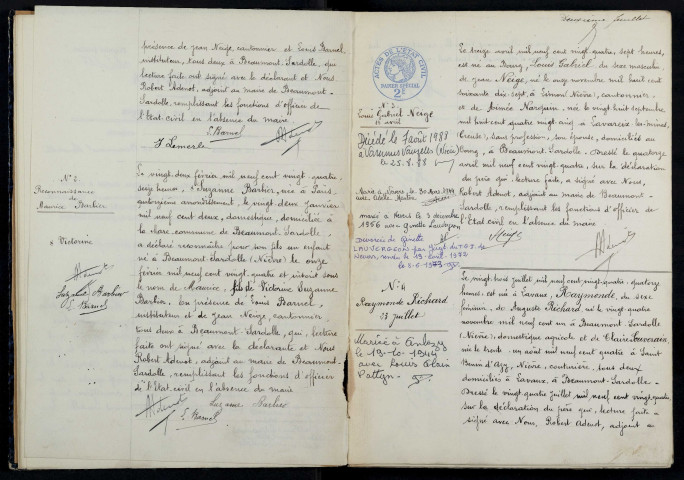 présence de Jean Neige, cantonnier et Louis Barnel,
instituteur, tous deux à Beaumont-Sardolle, qui,
lecture faite ont signé avec le déclarant et Nous
Robert Adenot, adjoint au maire de Beaumont-
Sardolle, remplissant les fonctions d'officier de
l'Etat-civil en l'absence du maire
L. Barnel
J. Lemerle
N° 2
Reconnaissance
de
Maurice Barlier
Le vingt deux février mil neuf cent vingt quatre,
seize heures. Suzanne Barlier, née à Paris,
arrondissement, le vingt deux janvier
mil neuf cent deux, domestique, domiciliée à
la commune de Beaumont-Sardolle
a déclaré reconnaître pour son fils un enfant
né à Beaumont-Sardolle (Nièvre) le onze
février mil neuf cent vingt quatre et inscrit sous
le nom de Maurice, fils de Victorine Suzanne
Barlier. En présence de Louis Barnel
instituteur et de Jean Neige, cantonnier
tous deux à Beaumont-Sardolle, qui, lecture
faite ont signé avec la déclarante et Nous
Robert Adenot, adjoint au maire de Beaumont-
Sardolle, remplissant les fonctions d'officier
de l'Etat-civil en l'absence du maire
Suzanne Barlier
L. Barnel
Victorine
Suzanne Barlier
L. Barnel
ACTES DE L'ETAT CIVIL
PAPIER SPECIAL
N° 3
Louis Gabriel Neige
13 avril
Décédé le 7 août 1988
à Varennes Vauzelles (Nièvre)
le 25.8.88
Marié à Nevers le 30 Mars 1944
avec Adèle
marié à Nevers le 3 décembre
1956 avec Ginette Lauvergeon
Divorcés de Ginette
LAUVERGEON par Jugt du T.G.I. de
Nevers, rendu le 19 avril 1972
le 2.6.1973
Le treize avril mil neuf cent vingt quatre, sept heures,
est né au Bourg, Louis Gabriel, du sexe masculin,
de Jean Neige, né le onze novembre mil huit cent
soixante dix-sept, à Limon (Nièvre), cantonnier,
et de Aimée né le vingt huit septembre
mil huit cent quatre vingt cinq à Lavaveix-les-mines,
(Creuse), sans profession, son épouse, domiciliés au
Bourg, à Beaumont-Sardolle. Dressé le quatorze
avril mil neuf cent vingt quatre, sur la déclaration
du père qui, lecture faite, a signé avec Nous,
Robert Adenot, adjoint au maire de Beaumont-
Sardolle, remplissant les fonctions d'officier de
l'Etat civil en l'absence du maire
Neige
N° 4
Raymonde Richard
23 juillet
Mariée à Anlezy
le 19-10-1944
avec Louis Alain
Pattyn
Le vingt-trois juillet, mil neuf cent-vingt-quatre, quatorze
heures est née à Lavaux, Raymonde, du sexe
féminin, de Auguste Richard, né le vingt quatre
novembre mil neuf cent un à Beaumont-Sardolle
(Nièvre), domestique agricole et de Claire
née le trente un août mil neuf cent quatre à Saint
Benin d'Azy, Nièvre, couturière, tous deux
domiciliés à Lavaux, à Beaumont-Sardolle.
Dressé le vingt quatre juillet mil neuf cent vingt quatre,
sur la déclaration du père qui, lecture faite a
signé avec Nous, Robert Adenot, adjoint au